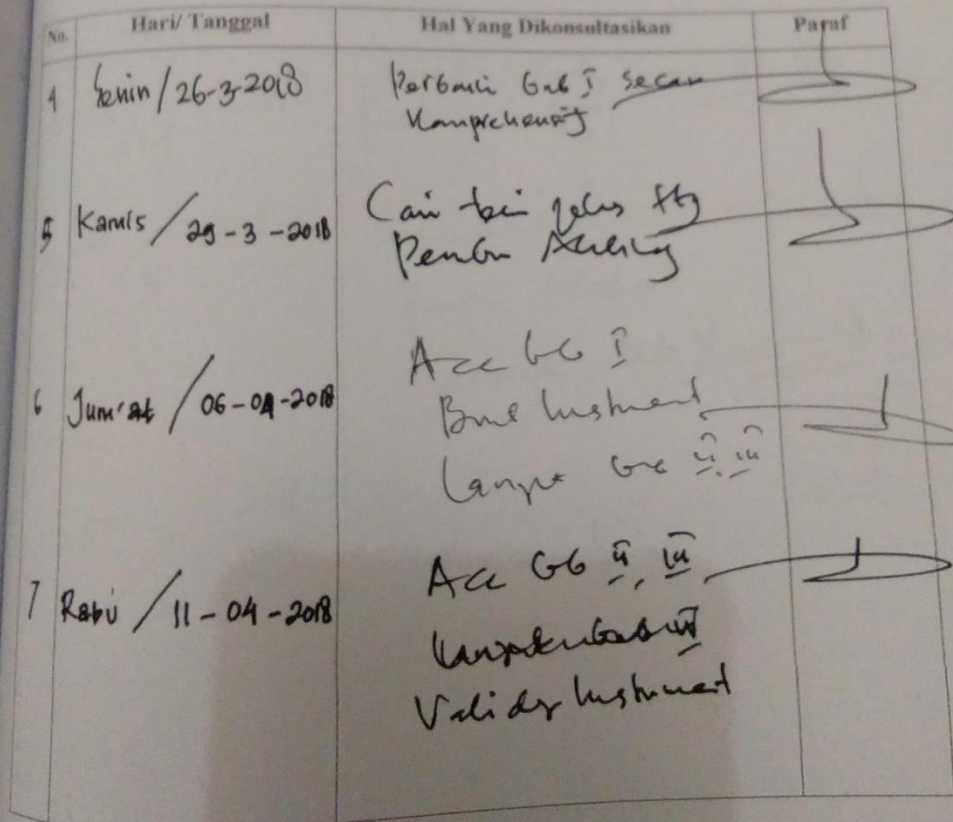 No. Hari/ Tanggal Hal Yang Dikonsultasikan Paraf
4 Senin / 26-3-2018 Perbaiki Bab I secara
Komprehensif
5 Kamis / 29-3-2018 Cari teori jelas ttg
6 Jum'at / 06-04-2018 Acc Bab I
Buat Instrument
Lanjut Bab II, III
7 Rabu / 11-04-2018 Acc Bab II, III
Lanjutkan Bab
Validasi Instrument